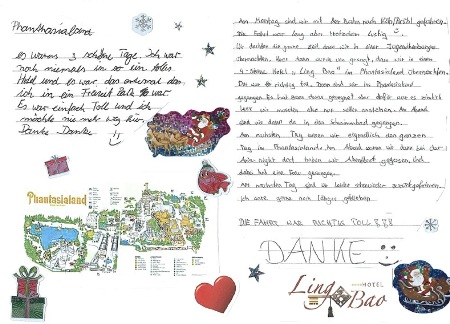 Phanthasialand
Es waren 3 schöne Tage. Ich war
noch niemals in so ein tolles
Hotel und es war das erstemal das
ich in ein Freizeit Park war
Es war einfach Toll und ich
möchte nie mehr weg hier
Danke Danke
Phantasialand
Am Montag sind wir mit der Bahn nach Köln/Brühl gefahren.
Die Fahrt war lang aber trotzdem lustig
Wir dachten die ganze Zeit dass wir in einer Jugendherberge
übernachten. Aber dann wurde uns gesagt, dass wir in dem
4-Sterne Hotel Ling Bao im Phantasialand übernachten.
Das war so richtig toll. Dann sind wir ins Phantasialand
gegangen
Am Abend
sind wir dann in das Schwimmbad gegangen.
Am nächsten Tag waren wir eigentlich den ganzen
Tag im Phantasialand. Am Abend waren wir dann
haben wir Abendbrot gegessen und
Am nächsten Tag sind wir leider wieder zurückgefahren.
Ich wäre gerne noch länger geblieben.
DIE FAHRT WAR RICHTIG TOLL
DANKE
Ling Bao
HOTEL